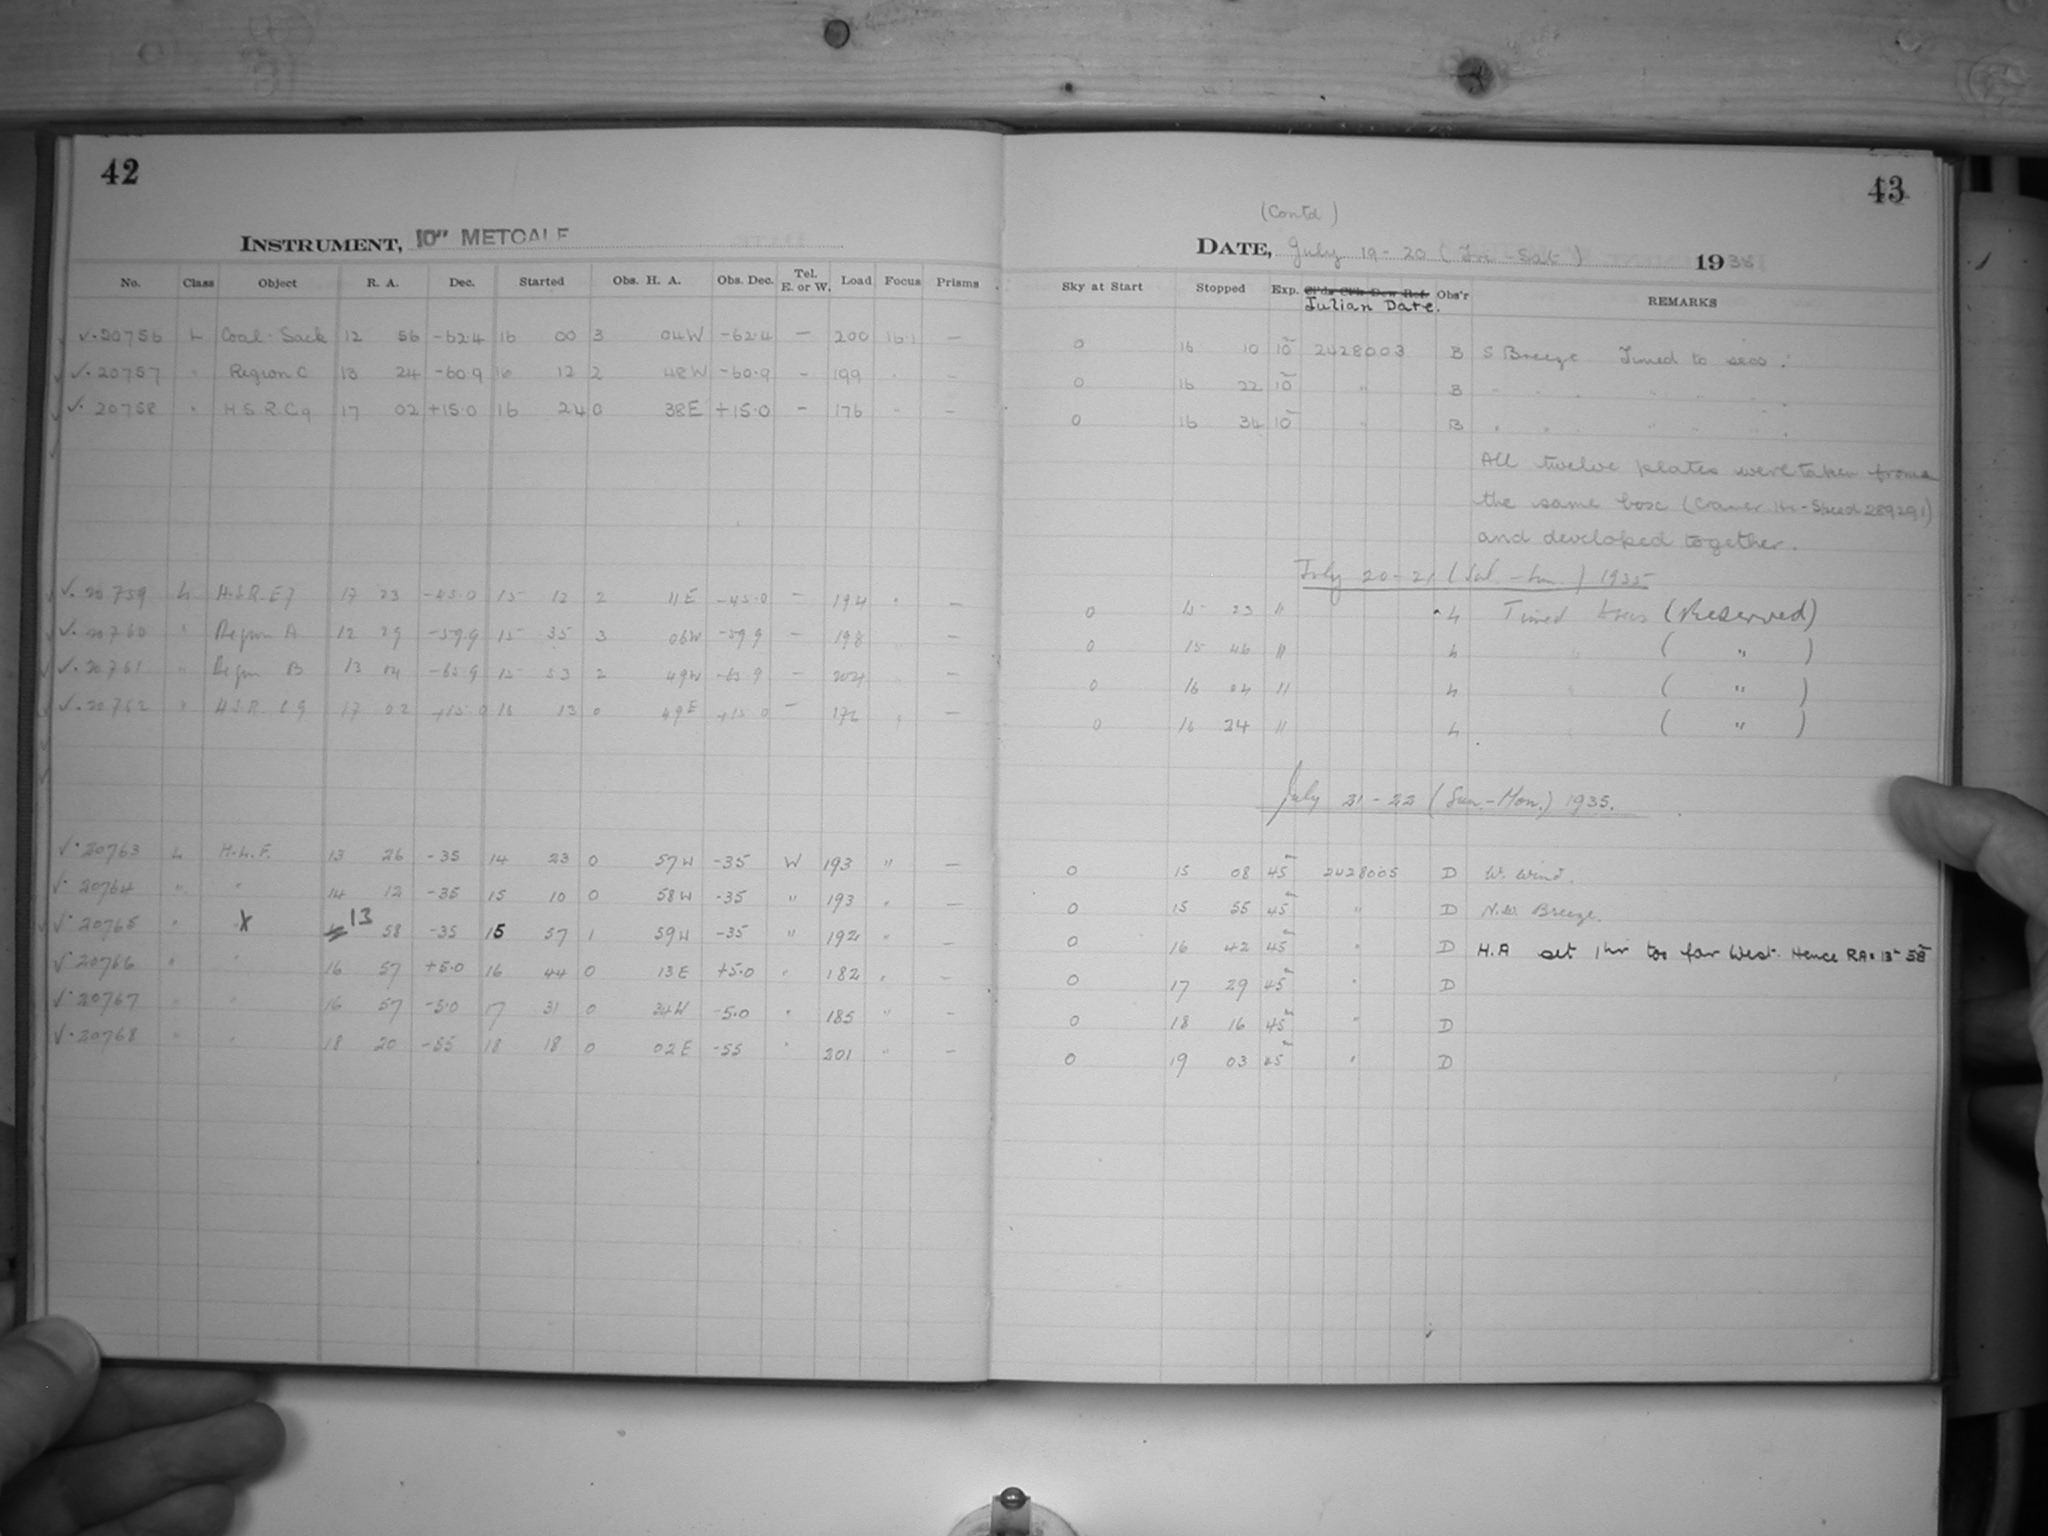 42
INSTRUMENT, 10" METCALF
No. Class Object R. A. Dec. Started Obs. H. A. Obs. Dec. Tel. E. or W. Load Focus Prisms
✓·20756 L Coal-Sack 12 56 -62.4 16 00 3 04W -62.4 — 200 16.1 —
✓·20757 " Region C 13 24 -60.9 16 12 2 48W -60.9 - 199 " —
✓·20758 " H.S.R.C9 17 02 +15.0 16 24 0 38E +15.0 - 176 " —
✓·20759 L H.S.R.E7 17 23 -45.0 15 12 2 11E -45.0 - 194 " —
✓·20760 " Region A 12 29 -59.9 15 35 3 06W -59.9 - 198 —
✓·20761 " Region B 13 04 -65.9 15 53 2 49W -65.9 - 204 —
✓·20762 " H.S.R. C9 17 02 +15.0 16 13 0 49E +15.0 - 176 —
✓·20763 L H.L.F. 13 26 -35 14 23 0 57W -35 W 193 " —
✓·20764 " " 14 12 -35 15 10 0 58W -35 " 193 " —
✓·20765 " X 13 58 -35 15 57 1 59W -35 " 192 " —
✓·20766 " " 16 57 +5.0 16 44 0 13E +5.0 " 182 " —
✓·20767 " " 16 57 -5.0 17 31 0 34W -5.0 " 185 " —
✓·20768 " " 18 20 -55 18 18 0 02E -55 " 201 " —
43
(Contd)
DATE, July 19-20 (Fri-Sat) 1935
Sky at Start Stopped Exp. Cl'ds Cl'k Dew Ref. Obs'r REMARKS
Julian Date.
0 16 10 10 2428003 B S Breeze Timed to secs.
0 16 22 10 " B " " " " "
0 16 34 10 " B " " " " "
All twelve plates were taken from
the same box (Cramer Hi-Speed 289291)
and developed together.
July 20-21 (Sat.-Sun.) 1935
0 15 23 11 h Timed (Reserved)
0 15 46 11 h " ( " )
0 16 04 11 h " ( " )
0 16 24 11 h " ( " )
July 21-22 (Sun.-Mon.) 1935.
0 15 08 45 2428005 D W. Wind.
0 15 55 45 " D N.W. Breeze.
0 16 42 45 " D H.A set 1hr too far West. Hence RA = 13 58
0 17 29 45 " D
0 18 16 45 " D
0 19 03 45 " D